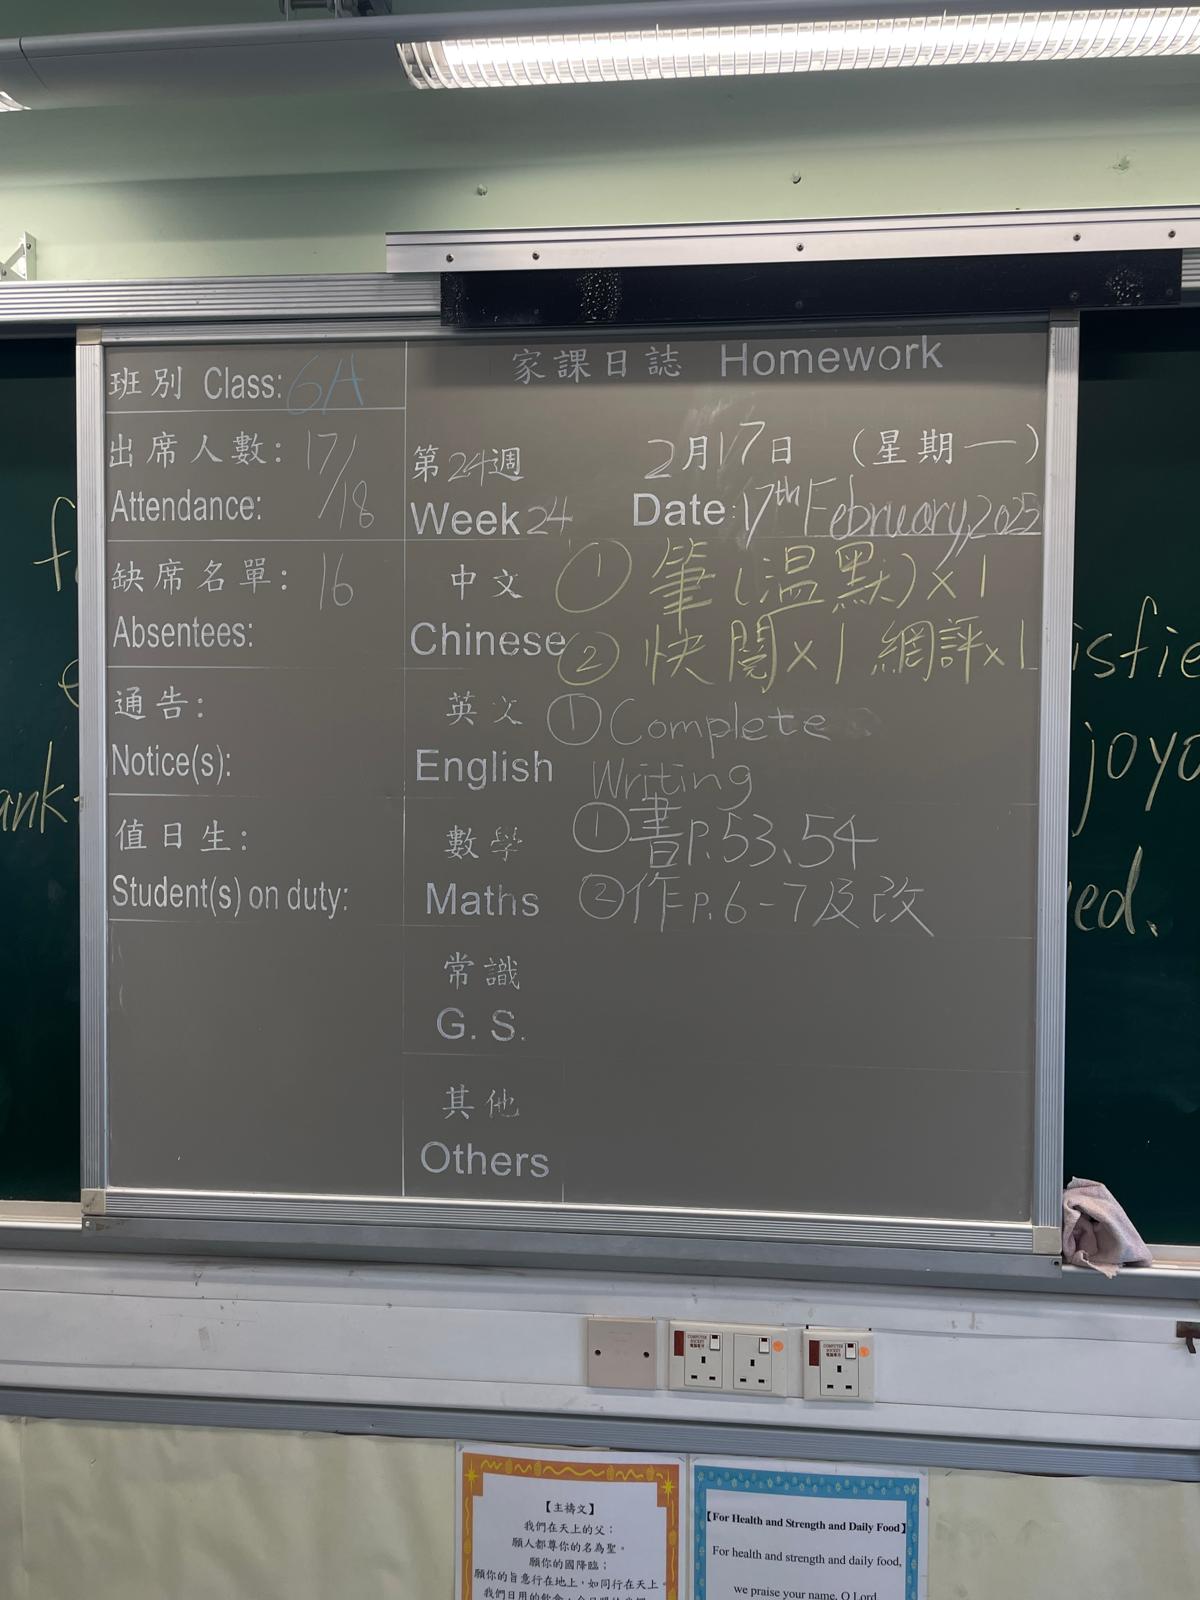 班別 Class: 6A
家課日誌 Homework
出席人數: 17/18
Attendance:
第24週
2月17日 (星期一)
Week 24
Date: 17th February, 2025
缺席名單: 16
Absentees:
中文 ① 筆(溫默)x1
Chinese ② 快閱x1 網評x1
通告:
Notice(s):
英文 ① Complete
English Writing
值日生:
Student(s) on duty:
數學 ① 書P.53、54
Maths ② 作P.6-7及改
常識
G. S.
其他
Others
joyo
ed.
COMPUTER SOCKET
COMPUTER SOCKET
【主禱文】
我們在天上的父：
願人都尊你的名為聖。
願你的國降臨；
願你的旨意行在地上，如同行在天上。
【For Health and Strength and Daily Food】
For health and strength and daily food,
we praise your name, O Lord